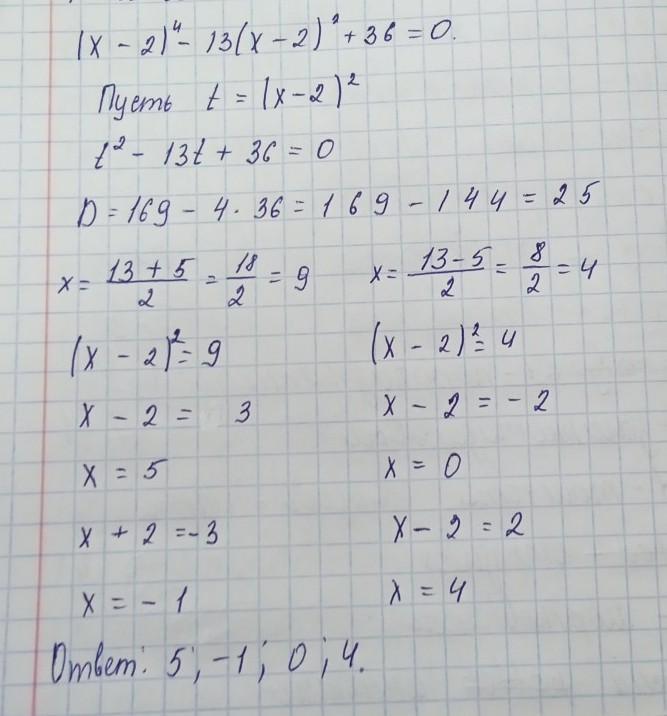 (x - 2)⁴ - 13(x - 2)² + 36 = 0.
Пусть t = (x - 2)²
t² - 13t + 36 = 0
D = 169 - 4 · 36 = 169 - 144 = 25
x = (13 + 5)/2 = 18/2 = 9    x = (13 - 5)/2 = 8/2 = 4
(x - 2)² = 9    (x - 2)² = 4
x - 2 = 3    x - 2 = - 2
x = 5    x = 0
x + 2 = -3    x - 2 = 2
x = - 1    x = 4
Ответ: 5; -1; 0; 4.